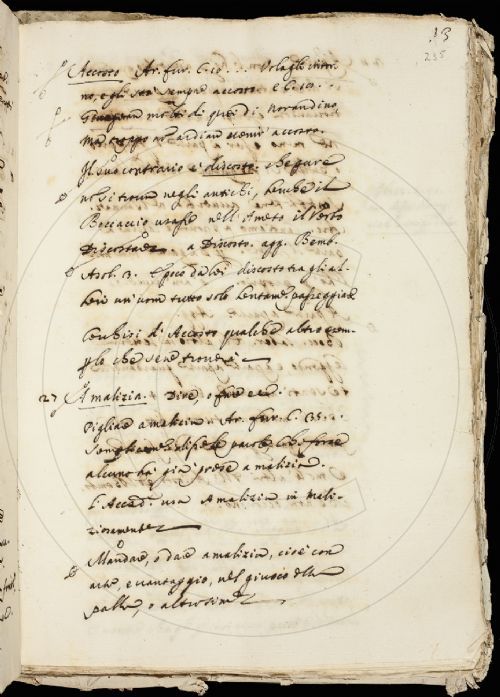 13
235
Accosto Ar. fur. C. 10 . . . Volagli intor-
no, e gli sta sempre accosto. e C. 10 . . .
molti di quei di Norandino,
Ma troppo non ardian venir accosto.
Il suo contrario è discosto: che pure
non si trova negli antichi, benche il
Boccaccio usasse nell'Ameto il verbo
Discostare. a Discosto. app. Bemb.
Asol. 3. E poco da lei discosto tra gli al-
beri un'uom tutto solo lentamente passeggiare
di Accosto qualche altro esem-
plo che se ne trova
27 Amalizia. Dire, o fare
Pigliare amalizia Ar. fur. C. 35 . . .
parole, che forse
alcuno ha già prese amalizia.
L'Accad. usa Amalizia in mali-
ziosamente
Mandare, o dare amalizia, cioè con
arte, e vantaggio, nel giuoco della
palla, o altro simile